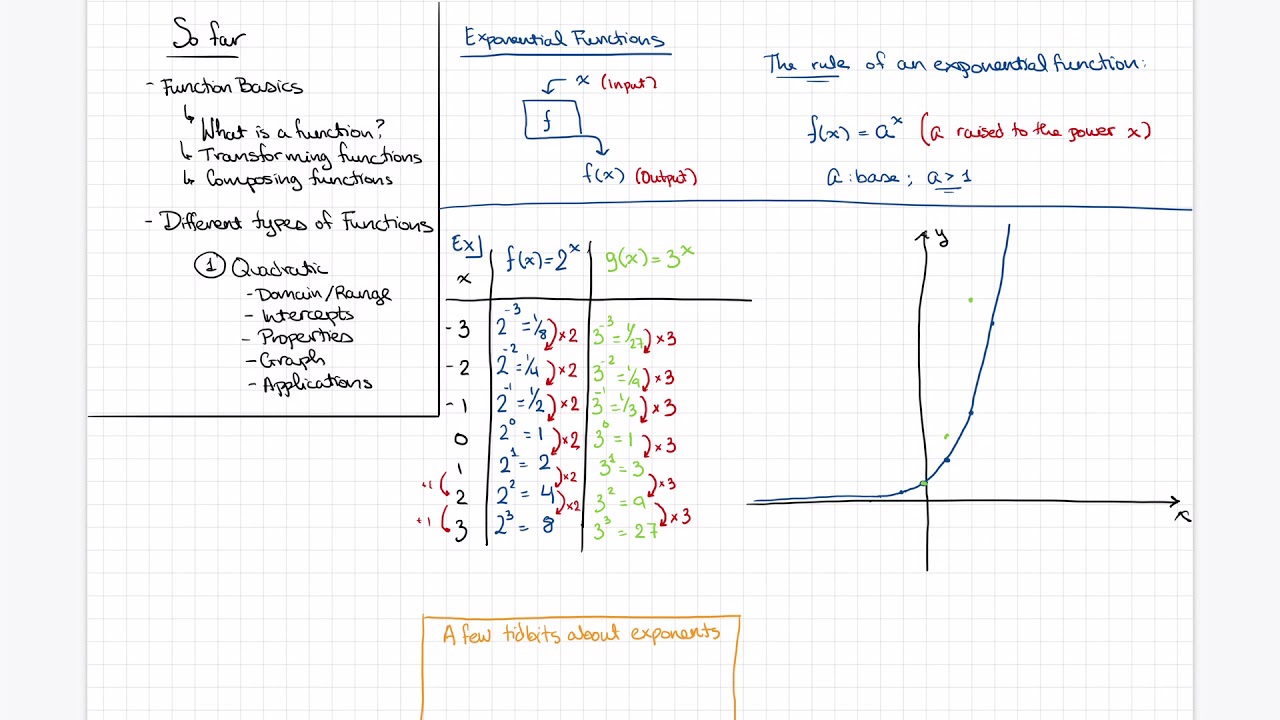 So far
- Function Basics
↳ What is a function?
↳ Transforming functions
↳ Composing functions
- Different types of Functions
① Quadratic
- Domain/Range
- Intercepts
- Properties
- Graph
- Applications
Exponential Functions
x (Input)
f
f(x) (Output)
The rule of an exponential function:
f(x) = aˣ (a raised to the power x)
a : base ; a > 1
Ex]
x f(x) = 2ˣ g(x) = 3ˣ
-3 2⁻³ = 1/8 ×2 3⁻³ = 1/27 ×3
-2 2⁻² = 1/4 ×2 3⁻² = 1/9 ×3
-1 2⁻¹ = 1/2 ×2 3⁻¹ = 1/3 ×3
0 2⁰ = 1 ×2 3⁰ = 1 ×3
1 2¹ = 2 ×2 3¹ = 3 ×3
+1 2 2² = 4 ×2 3² = 9 ×3
+1 3 2³ = 8 3³ = 27
y
x
A few tidbits about exponents